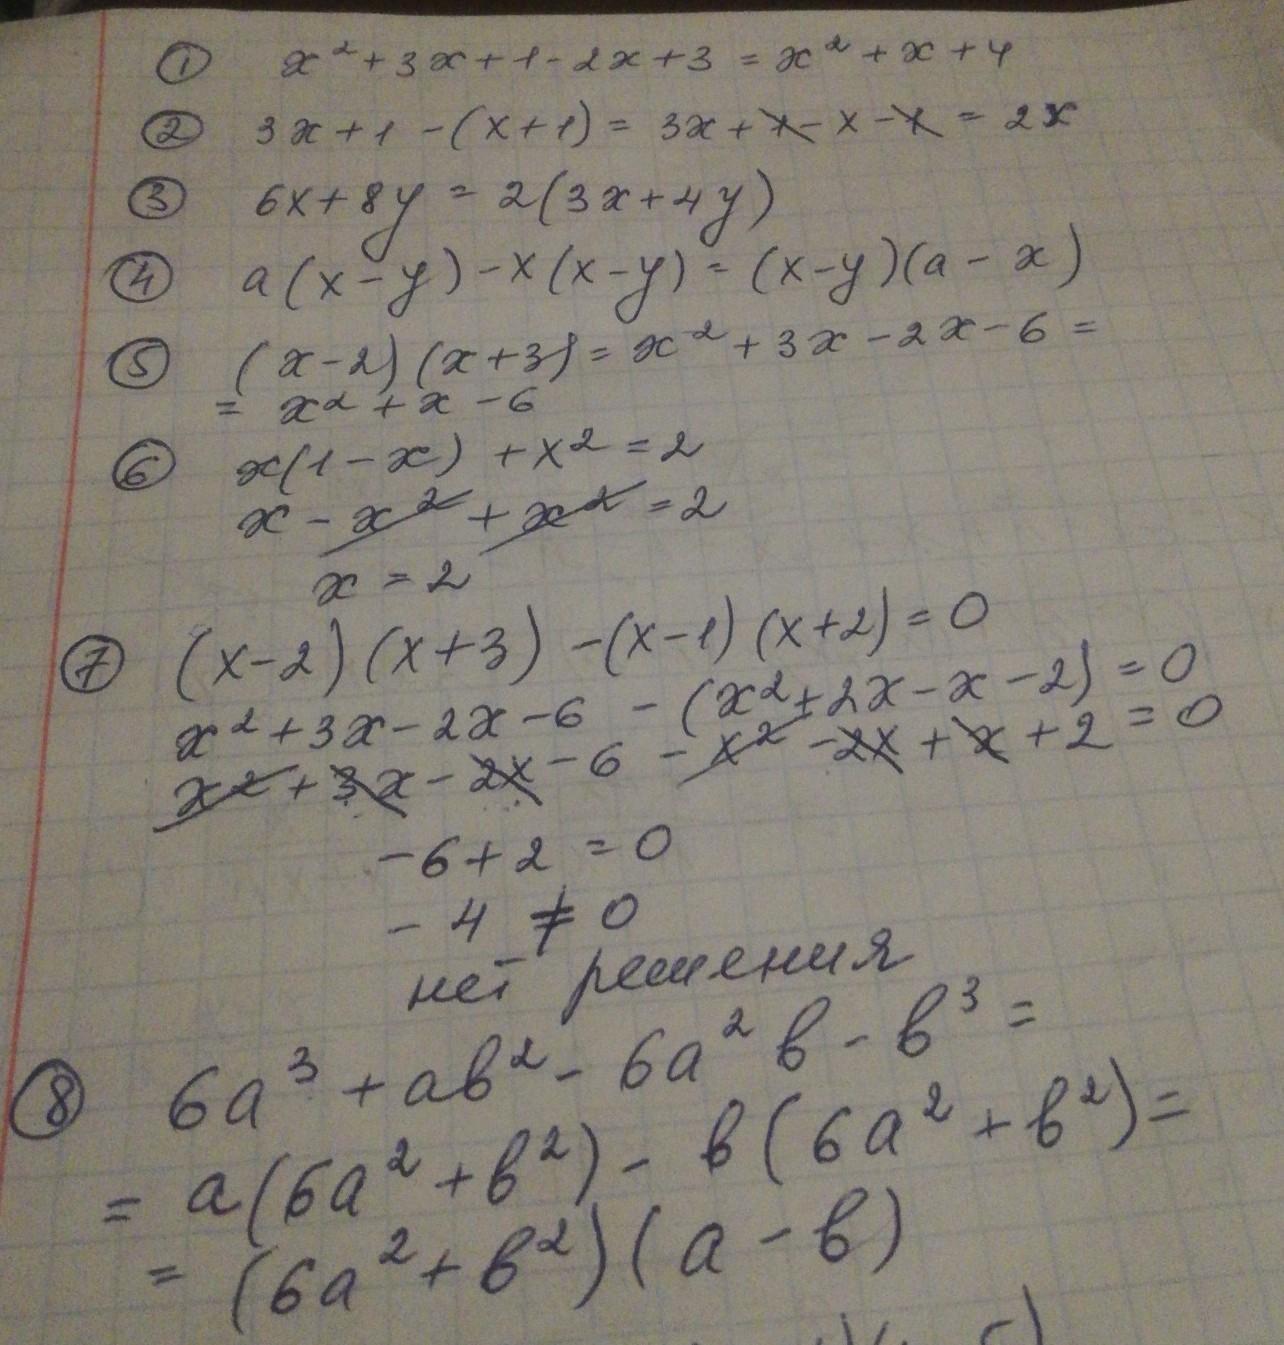 ① x² + 3x + 1 - 2x + 3 = x² + x + 4
② 3x + 1 - (x + 1) = 3x + 1 - x - 1 = 2x
③ 6x + 8y = 2(3x + 4y)
④ a(x - y) - x(x - y) = (x - y)(a - x)
⑤ (x - 2)(x + 3) = x² + 3x - 2x - 6 =
= x² + x - 6
⑥ x(1 - x) + x² = 2
x - x² + x² = 2
x = 2
⑦ (x - 2)(x + 3) - (x - 1)(x + 2) = 0
x² + 3x - 2x - 6 - (x² + 2x - x - 2) = 0
x² + 3x - 2x - 6 - x² - 2x + x + 2 = 0
-6 + 2 = 0
-4 ≠ 0
нет решения
⑧ 6a³ + ab² - 6a²b - b³ =
= a(6a² + b²) - b(6a² + b²) =
= (6a² + b²)(a - b)